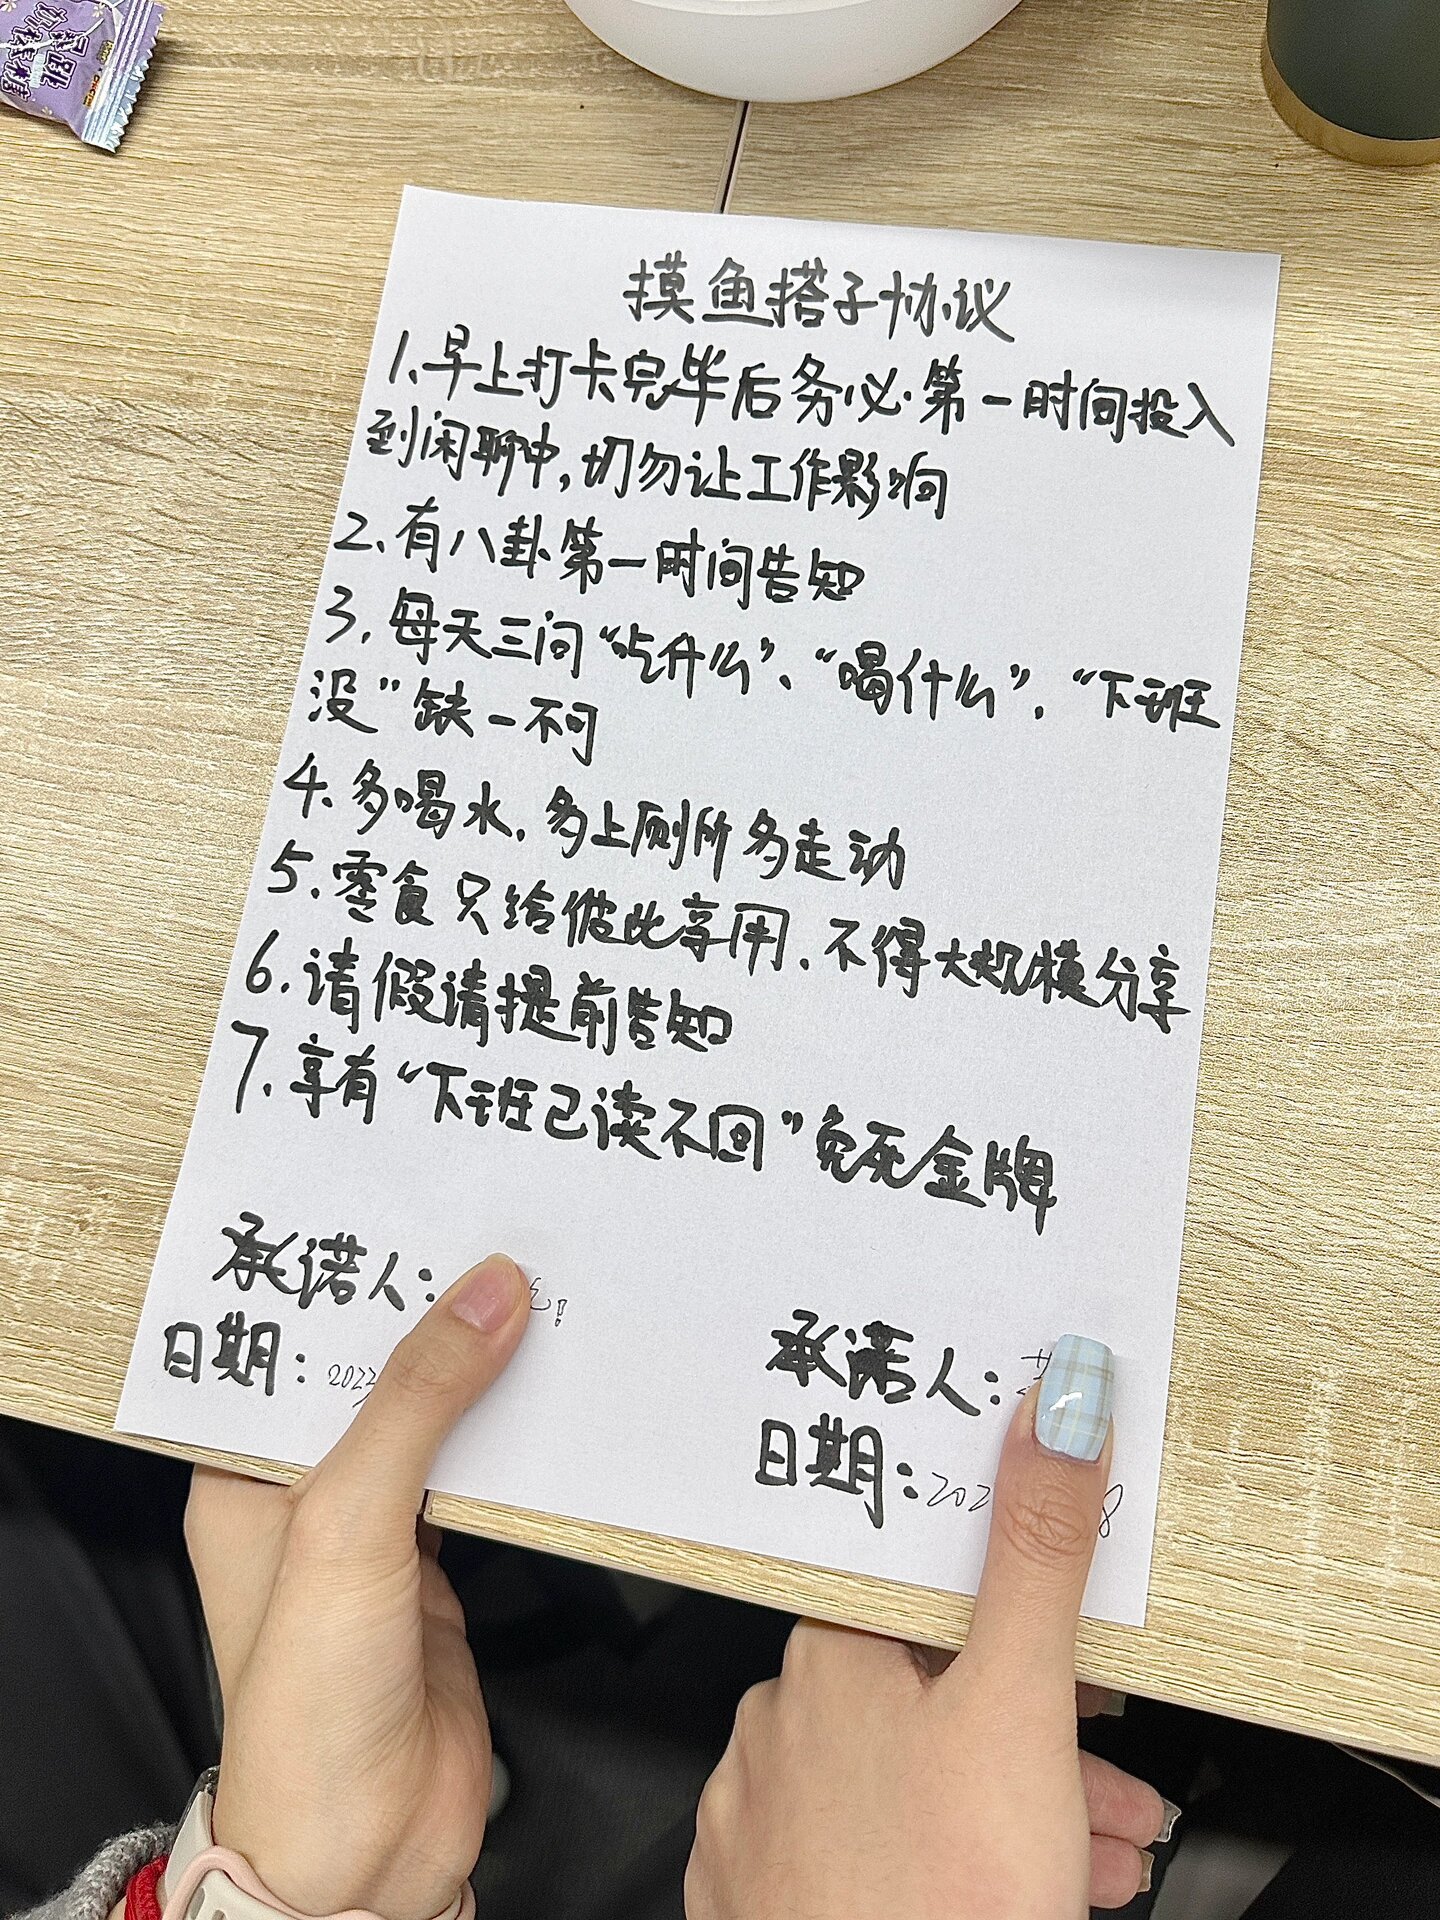 摸鱼搭子协议
1、早上打卡完毕后务必第一时间投入
到闲聊中，切勿让工作影响
2、有八卦第一时间告知
3、每天三问“吃什么”、“喝什么”、“下班
没”缺一不可
4、多喝水，多上厕所多走动
5、零食只给彼此享用，不得大规模分享
6、请假请提前告知
7、享有“下班已读不回”免死金牌
承诺人：
日期：
承诺人：
日期：